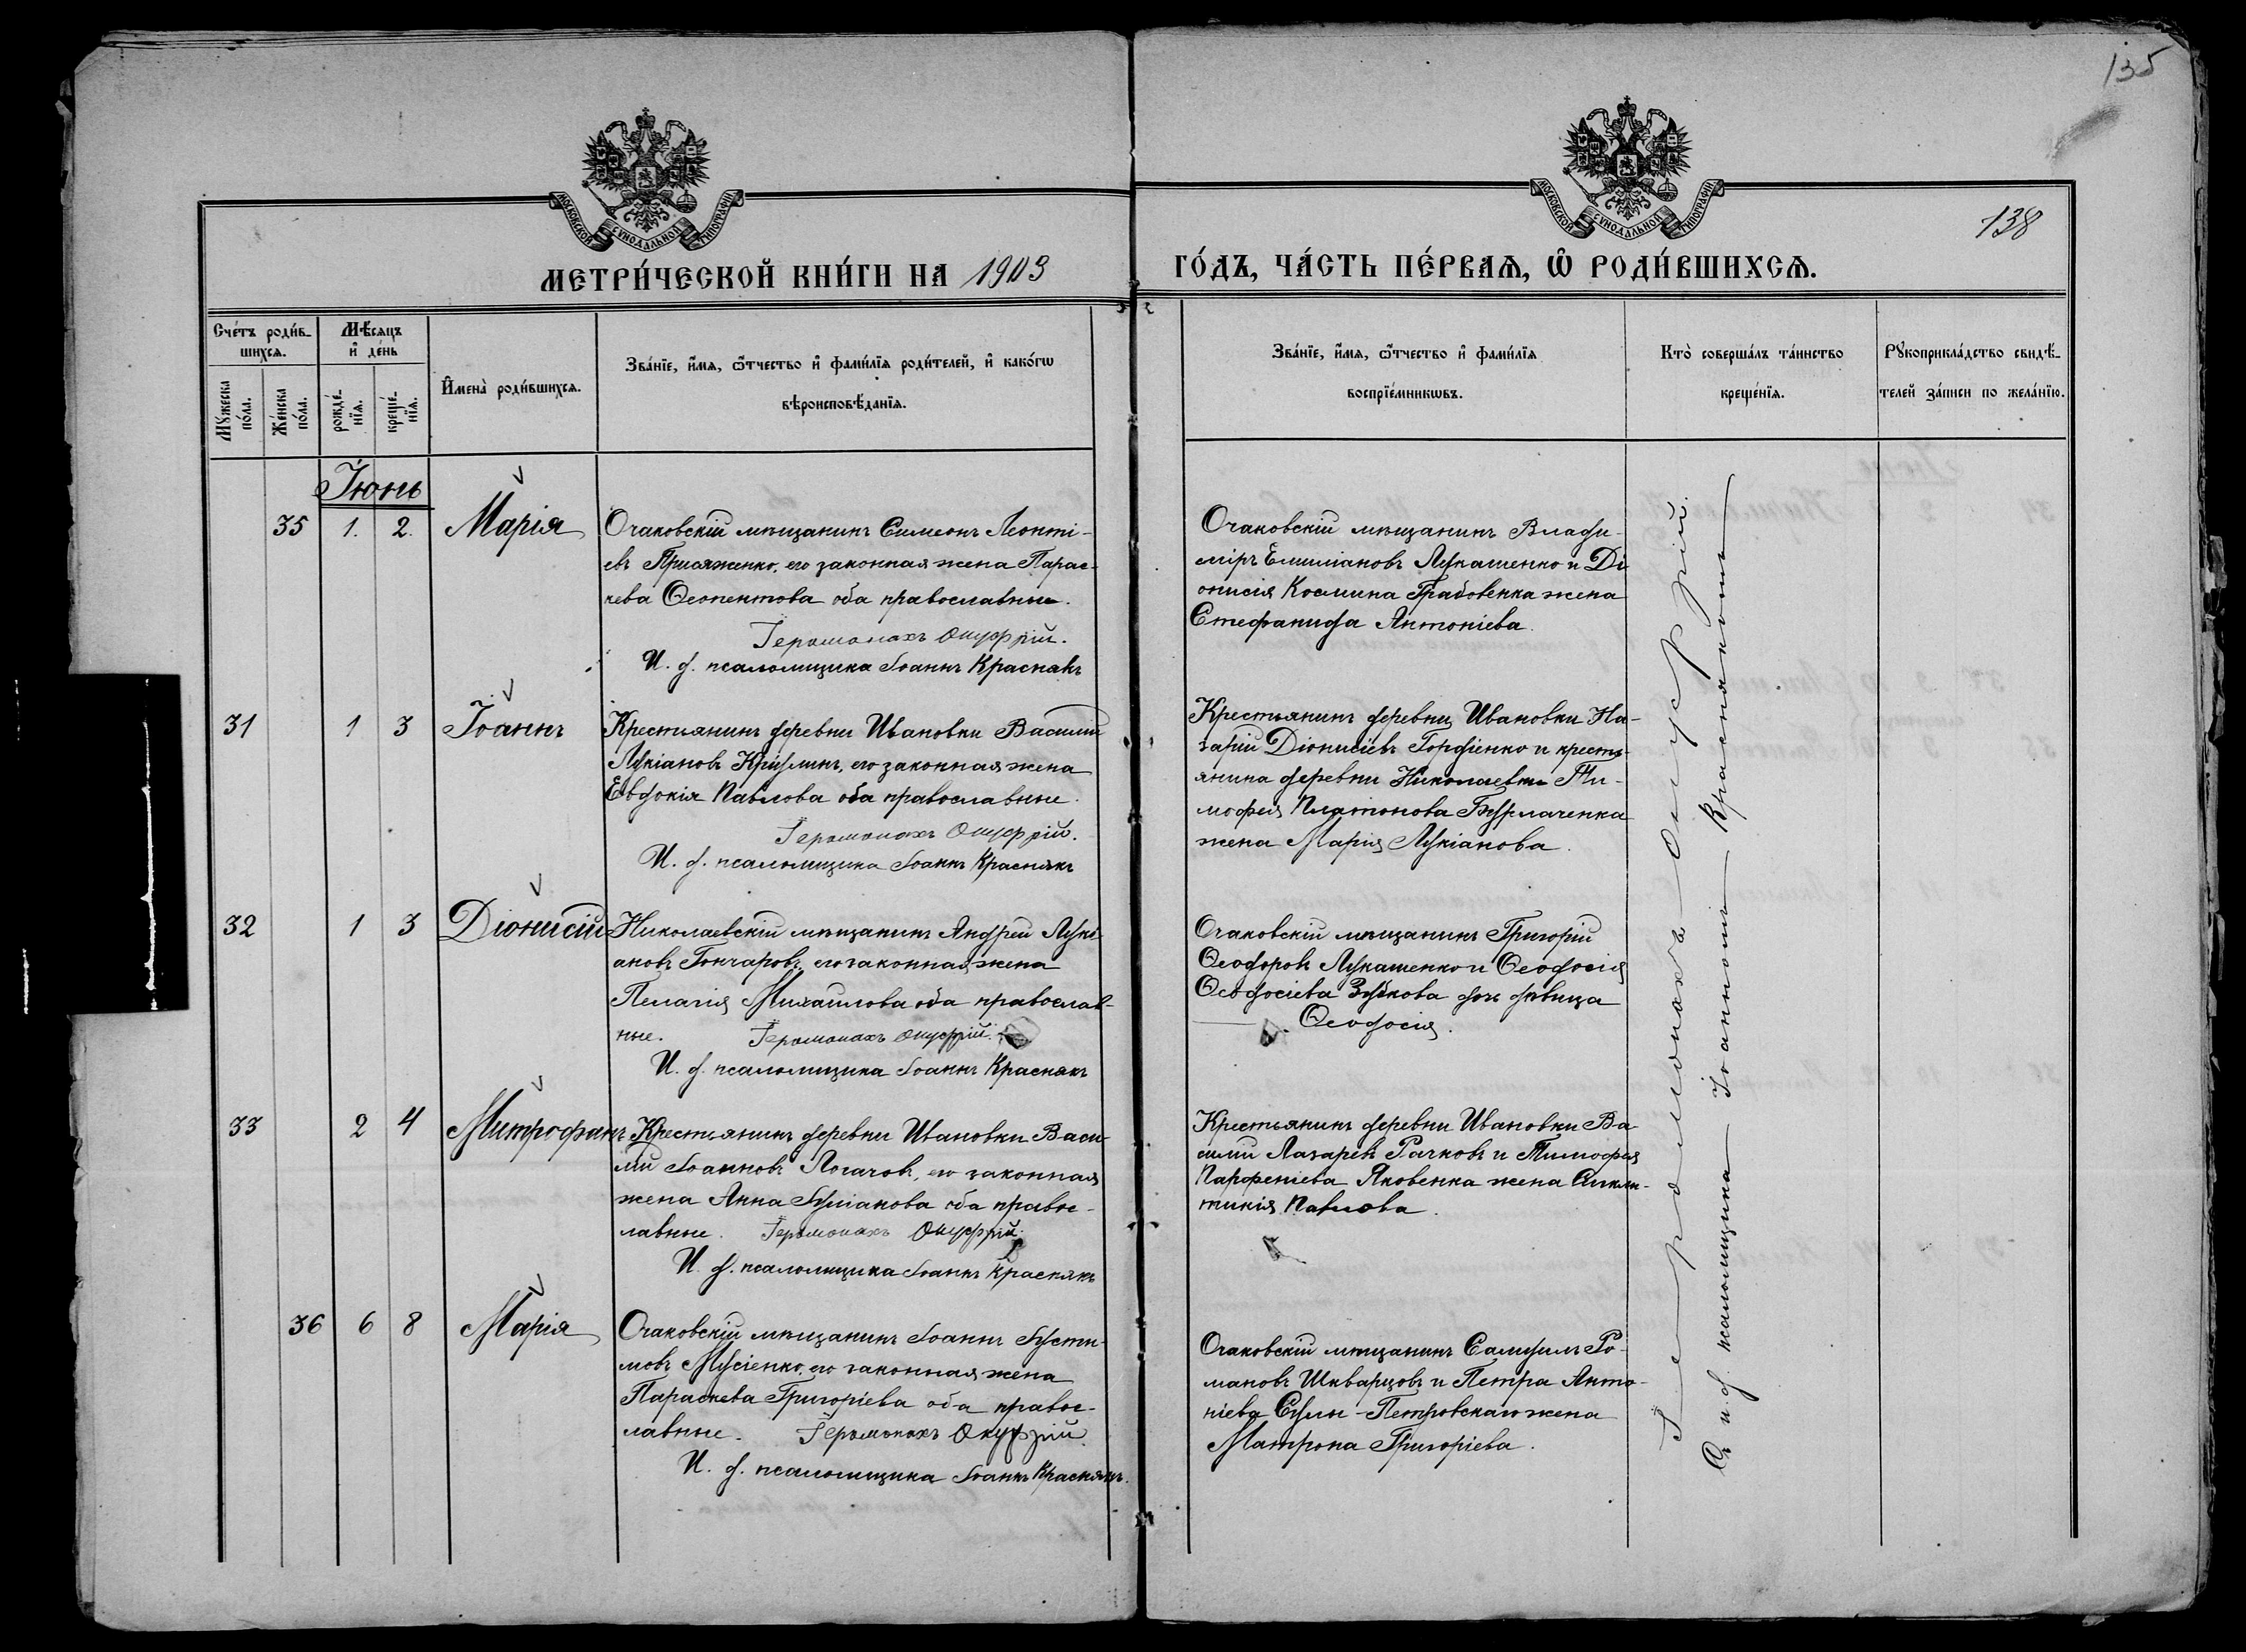 135
138
МОСКОВСКОЙ СѴНОДАЛЬНОЙ ТИПОГРАФІИ
МОСКОВСКОЙ СѴНОДАЛЬНОЙ ТИПОГРАФІИ
МЕТРИ́ЧЕСКОЙ КНИ́ГИ НА 1903 ГО́ДЪ, ЧА́СТЬ ПЕ́РВАѦ, Ѡ҆ РОДИ́ВШИХСѦ.
Сче́тъ роди́в-
шихсѧ.
Мꙋжеска
по́ла.
Же́нска
по́ла.
Мѣ́сѧцъ
и҆ де́нь
рожде́-
нїѧ.
креще́-
нїѧ.
И҆мена̀ роди́вшихсѧ.
Зва́нїе, и҆́мѧ, ѻ҆́тчество и҆ фами́лїѧ роди́телей, и҆ како́гѡ
вѣроисповѣ́данїѧ.
Зва́нїе, и҆́мѧ, ѻ҆́тчество и҆ фами́лїѧ
воспрїе́мникѡвъ.
Кто̀ соверша́лъ та́инство
креще́нїѧ.
Рꙋкоприкла́дство свидѣ́-
телей за́писи по жела́нїю.
Іюнь
35 1. 2. Марія
Очаковскій мѣщанинъ Симеонъ Леонті-
евъ Присяженко, его законная жена Парас-
кева Ѳеопентова оба православные.
Іеромонахъ Онуфрій.
И. д. псаломщика Іоаннъ Краснякъ
Очаковскій мѣщанинъ Влади-
міръ Емиліановъ Лукашенко и Ді
онисія Космина Грабовенка жена
Стефанида Антоніева.
31 1 3 Іоаннъ
Крестьянинъ деревни Ивановки Василій
Лукіановъ Кридлинъ, его законная жена
Евдокія Павлова оба православные.
Іеромонахъ Онуфрій.
И. д. псаломщика Іоаннъ Краснякъ
Крестьянинъ деревни Ивановки На-
зарій Діонисіевъ Гордіенко и кресть-
янина деревни Николаевки Ти-
мофея Платонова Бурлаченка
жена Марія Лукіанова.
32 1 3 Діонисій
Николаевскій мѣщанинъ Андрей Лукі-
ановъ Гончаровъ, его законная жена
Пелагія Михаилова оба православ-
ные. Іеромонахъ Онуфрій.
И. д. псаломщика Іоаннъ Краснякъ
Очаковскій мѣщанинъ Григорій
Ѳеодоровъ Лукашенко и Ѳеодосія
Ѳеодосіева Зубкова дочь дѣвица
Ѳеодосія.
33 2 4 Митрофанъ
Крестьянинъ деревни Ивановки Васи-
лій Іоанновъ Логачовъ, его законная
жена Анна Іуліанова оба правос-
лавные. Іеромонахъ Онуфрій.
И. д. псаломщика Іоаннъ Краснякъ
Крестьянинъ деревни Ивановки Ва-
силій Лазаревъ Рачковъ и Тимофея
Парфеніева Яковенка жена Синкли-
тикія Павлова.
36 6 8 Марія
Очаковскій мѣщанинъ Іоаннъ Іусти-
мовъ Мусіенко, его законная жена
Параскева Григоріева оба правос-
лавные. Іеромонахъ Онуфрій.
И. д. псаломщика Іоаннъ Краснякъ.
Очаковскій мѣщанинъ Самуилъ Ро-
мановъ Шкварцовъ и Петра Анто-
ніева Сулы-Петровскаго жена
Матрона Григоріева.
Іеромонахъ Онуфрій.
Съ и. д. псаломщика Іоанномъ Краснякомъ